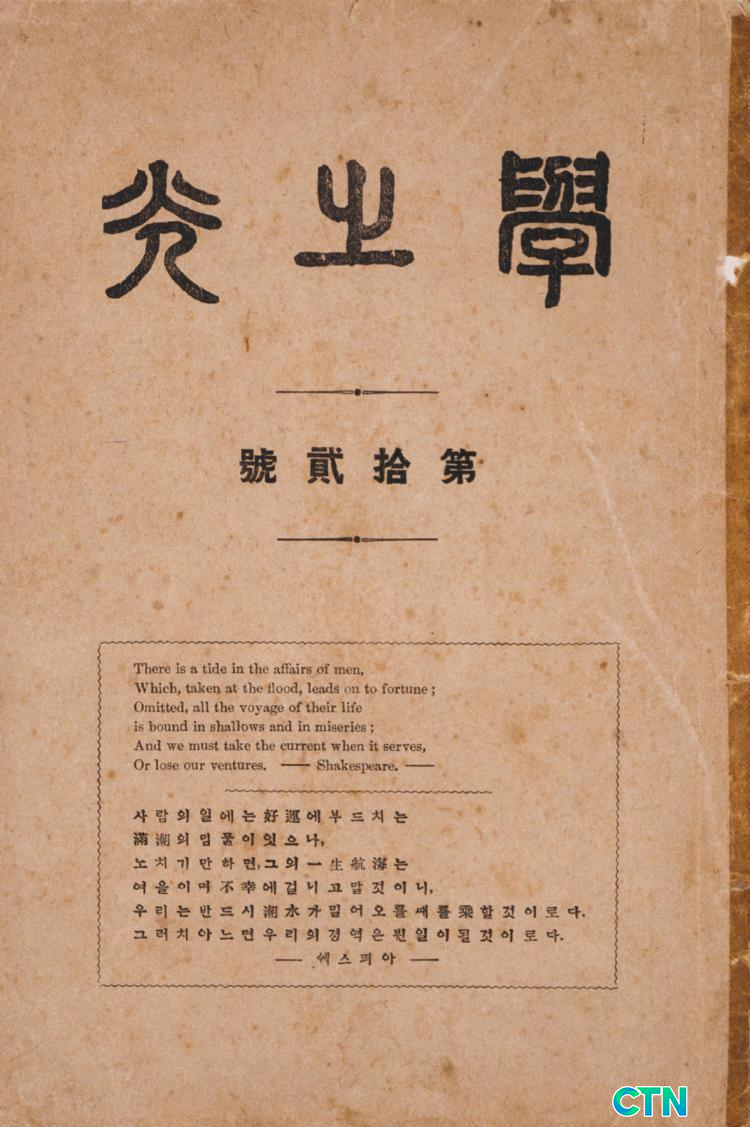 學之光
第拾貳號
There is a tide in the affairs of men,
Which, taken at the flood, leads on to fortune ;
Omitted, all the voyage of their life
is bound in shallows and in miseries ;
And we must take the current when it serves,
Or lose our ventures. —— Shakespeare. ——
사람의일에는好運에부드치는
滿潮의밈물이잇으나,
노치기만하면,그의一生航海는
여울이며不幸에걸니고말것이니,
우리는반드시潮水가밀어오를쌔를乘할것이로다.
그러치아느면우리의경역은뷘일이될것이로다.
—— 쉑스피아 ——
CTN